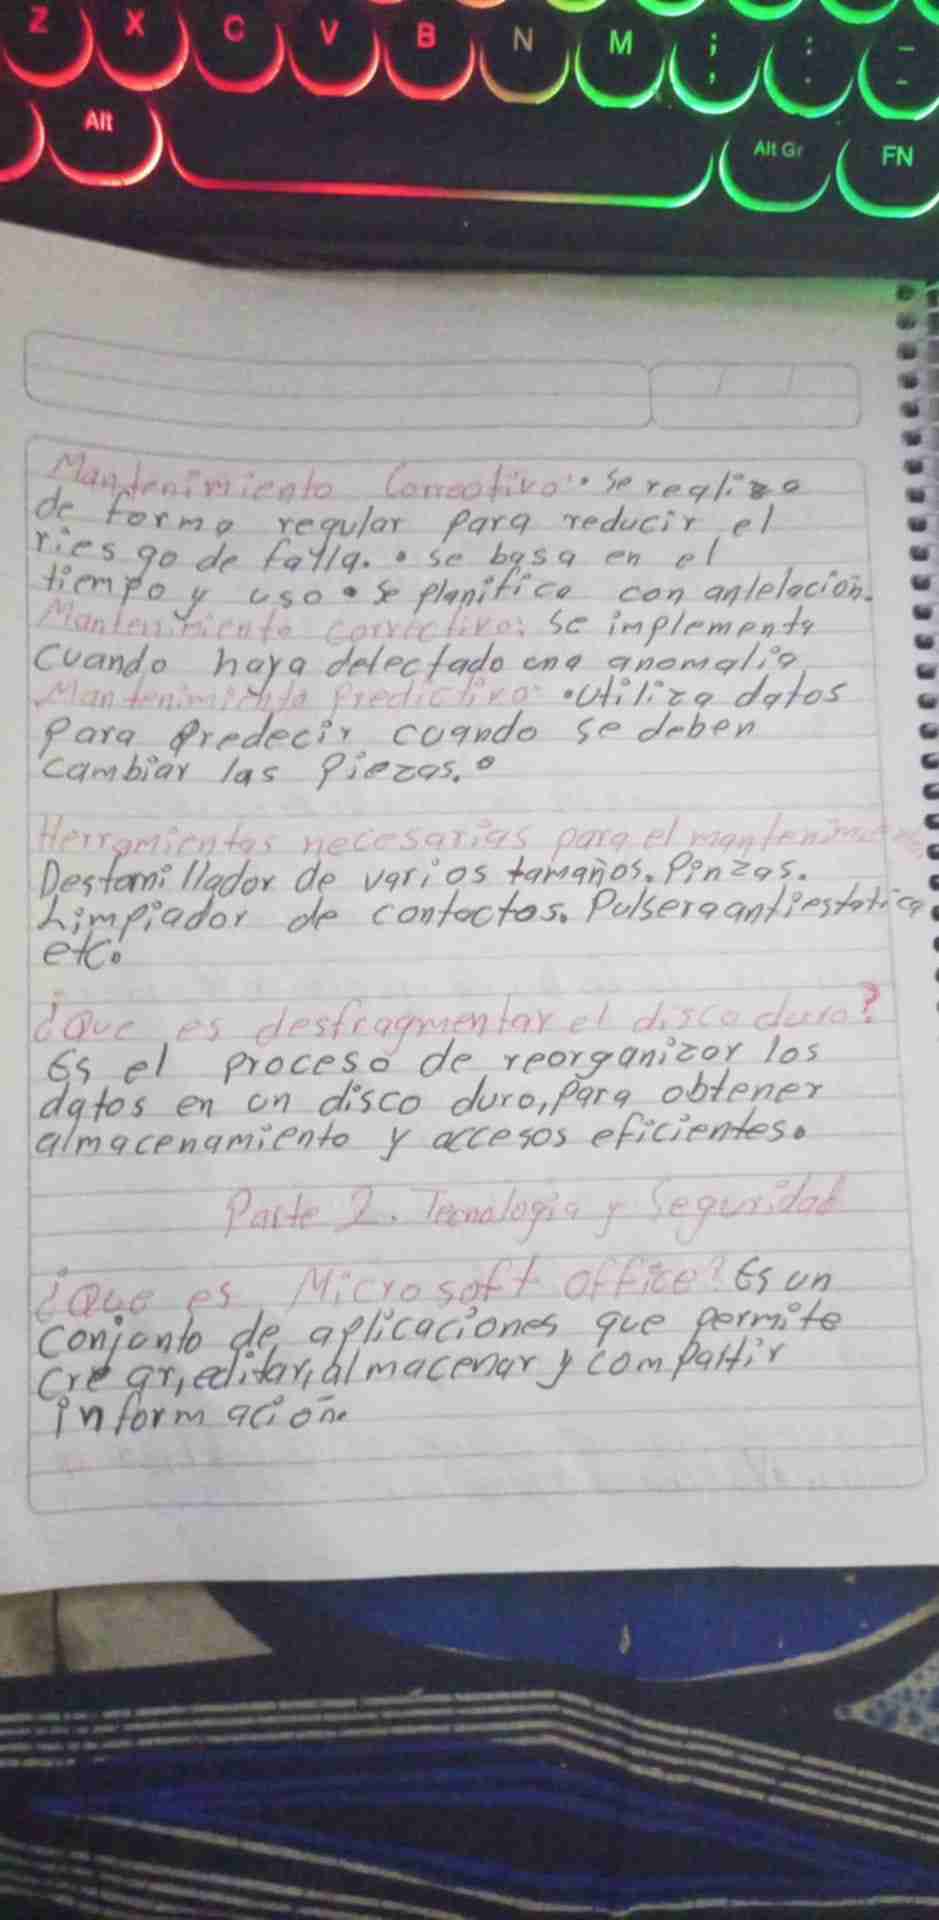 Z X C V B N M ; : _
, . -
Alt Alt Gr FN
Mantenimiento Correctivo: • Se realiza
de forma regular para reducir el
riesgo de falla. • se basa en el
tiempo y uso • Se planifica con antelación.
Mantenimiento correctivo: Se implementa
Cuando haya detectado una anomalía
Mantenimiento Predictivo: • Utiliza datos
para predecir cuando se deben
cambiar las piezas. •
Herramientas necesarias para el mantenimiento
Destornillador de varios tamaños. Pinzas.
Limpiador de contactos. Pulsera antiestatica
etc.
¿Que es desfragmentar el disco duro?
Es el proceso de reorganizar los
datos en un disco duro, para obtener
almacenamiento y accesos eficientes.
Parte 2. Tecnologia y Seguridad
¿Que es Microsoft office? Es un
Conjunto de aplicaciones que permite
crear, editar, almacenar y compartir
información.